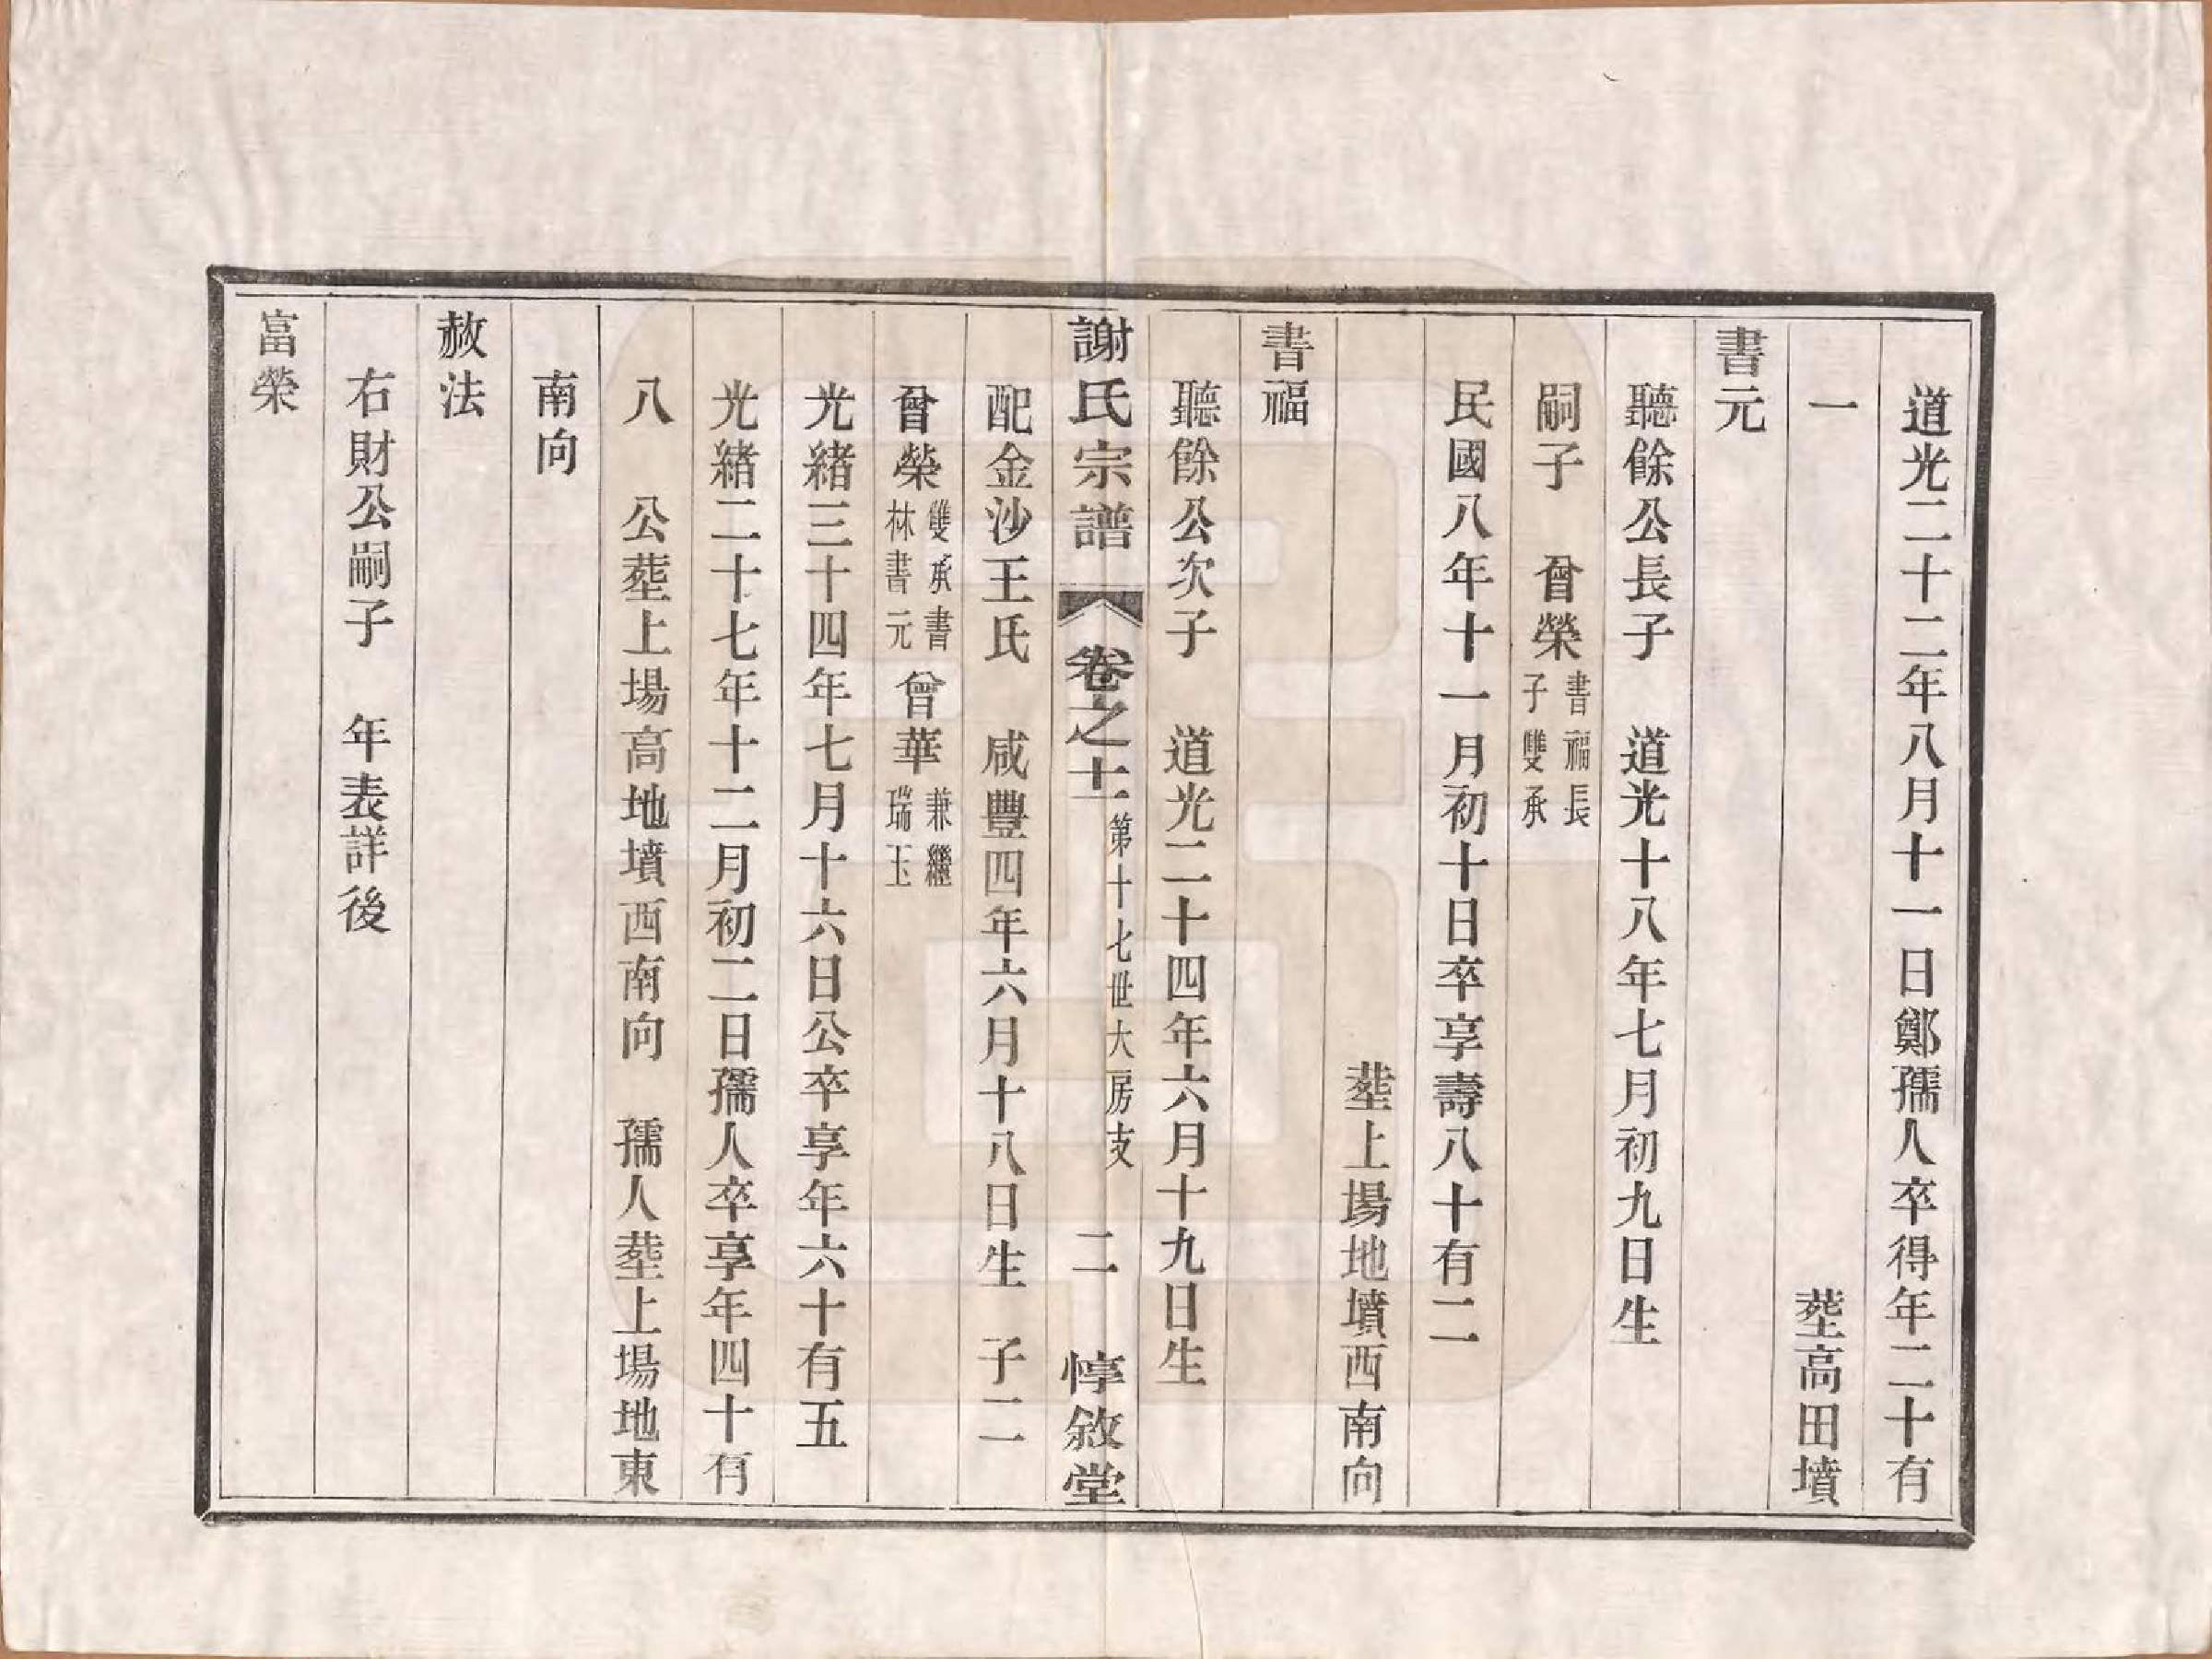 道光二十二年八月十一日鄭孺人卒得年二十有
一　塟高田墳
書元
聽餘公長子　道光十八年七月初九日生
嗣子　曾榮書福長子雙承
民國八年十一月初十日卒享壽八十有二
塟上場地墳西南向
書福
聽餘公次子　道光二十四年六月十九日生
謝氏宗譜　卷之十一　第十七世大房支　二　惇敘堂
配金沙王氏　咸豐四年六月十八日生　子二
曾榮雙承書林書元　曾華兼繼瑞玉
光緒三十四年七月十六日公卒享年六十有五
光緒二十七年十二月初二日孺人卒享年四十有
八　公塟上場高地墳西南向　孺人塟上場地東
南向
赦法
右財公嗣子　年表詳後
富榮